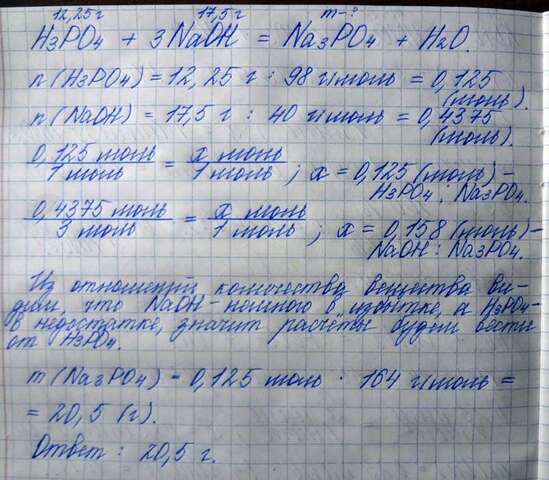 12,25г 17,5г m-?
H3PO4 + 3NaOH = Na3PO4 + H2O.
n(H3PO4) = 12,25 г : 98 г/моль = 0,125
(моль).
n(NaOH) = 17,5 г : 40 г/моль = 0,4375
(моль).
0,125 моль / 1 моль = x моль / 1 моль ; x = 0,125 (моль) -
H3PO4 : Na3PO4.
0,4375 моль / 3 моль = x моль / 1 моль ; x = 0,158 (моль) -
NaOH : Na3PO4.
Из отношений количества вещества ви-
дим, что NaOH - немного в избытке, а H3PO4 -
в недостатке, значит расчёты будем вести
от H3PO4.
m(Na3PO4) = 0,125 моль · 164 г/моль =
= 20,5 (г).
Ответ : 20,5 г.